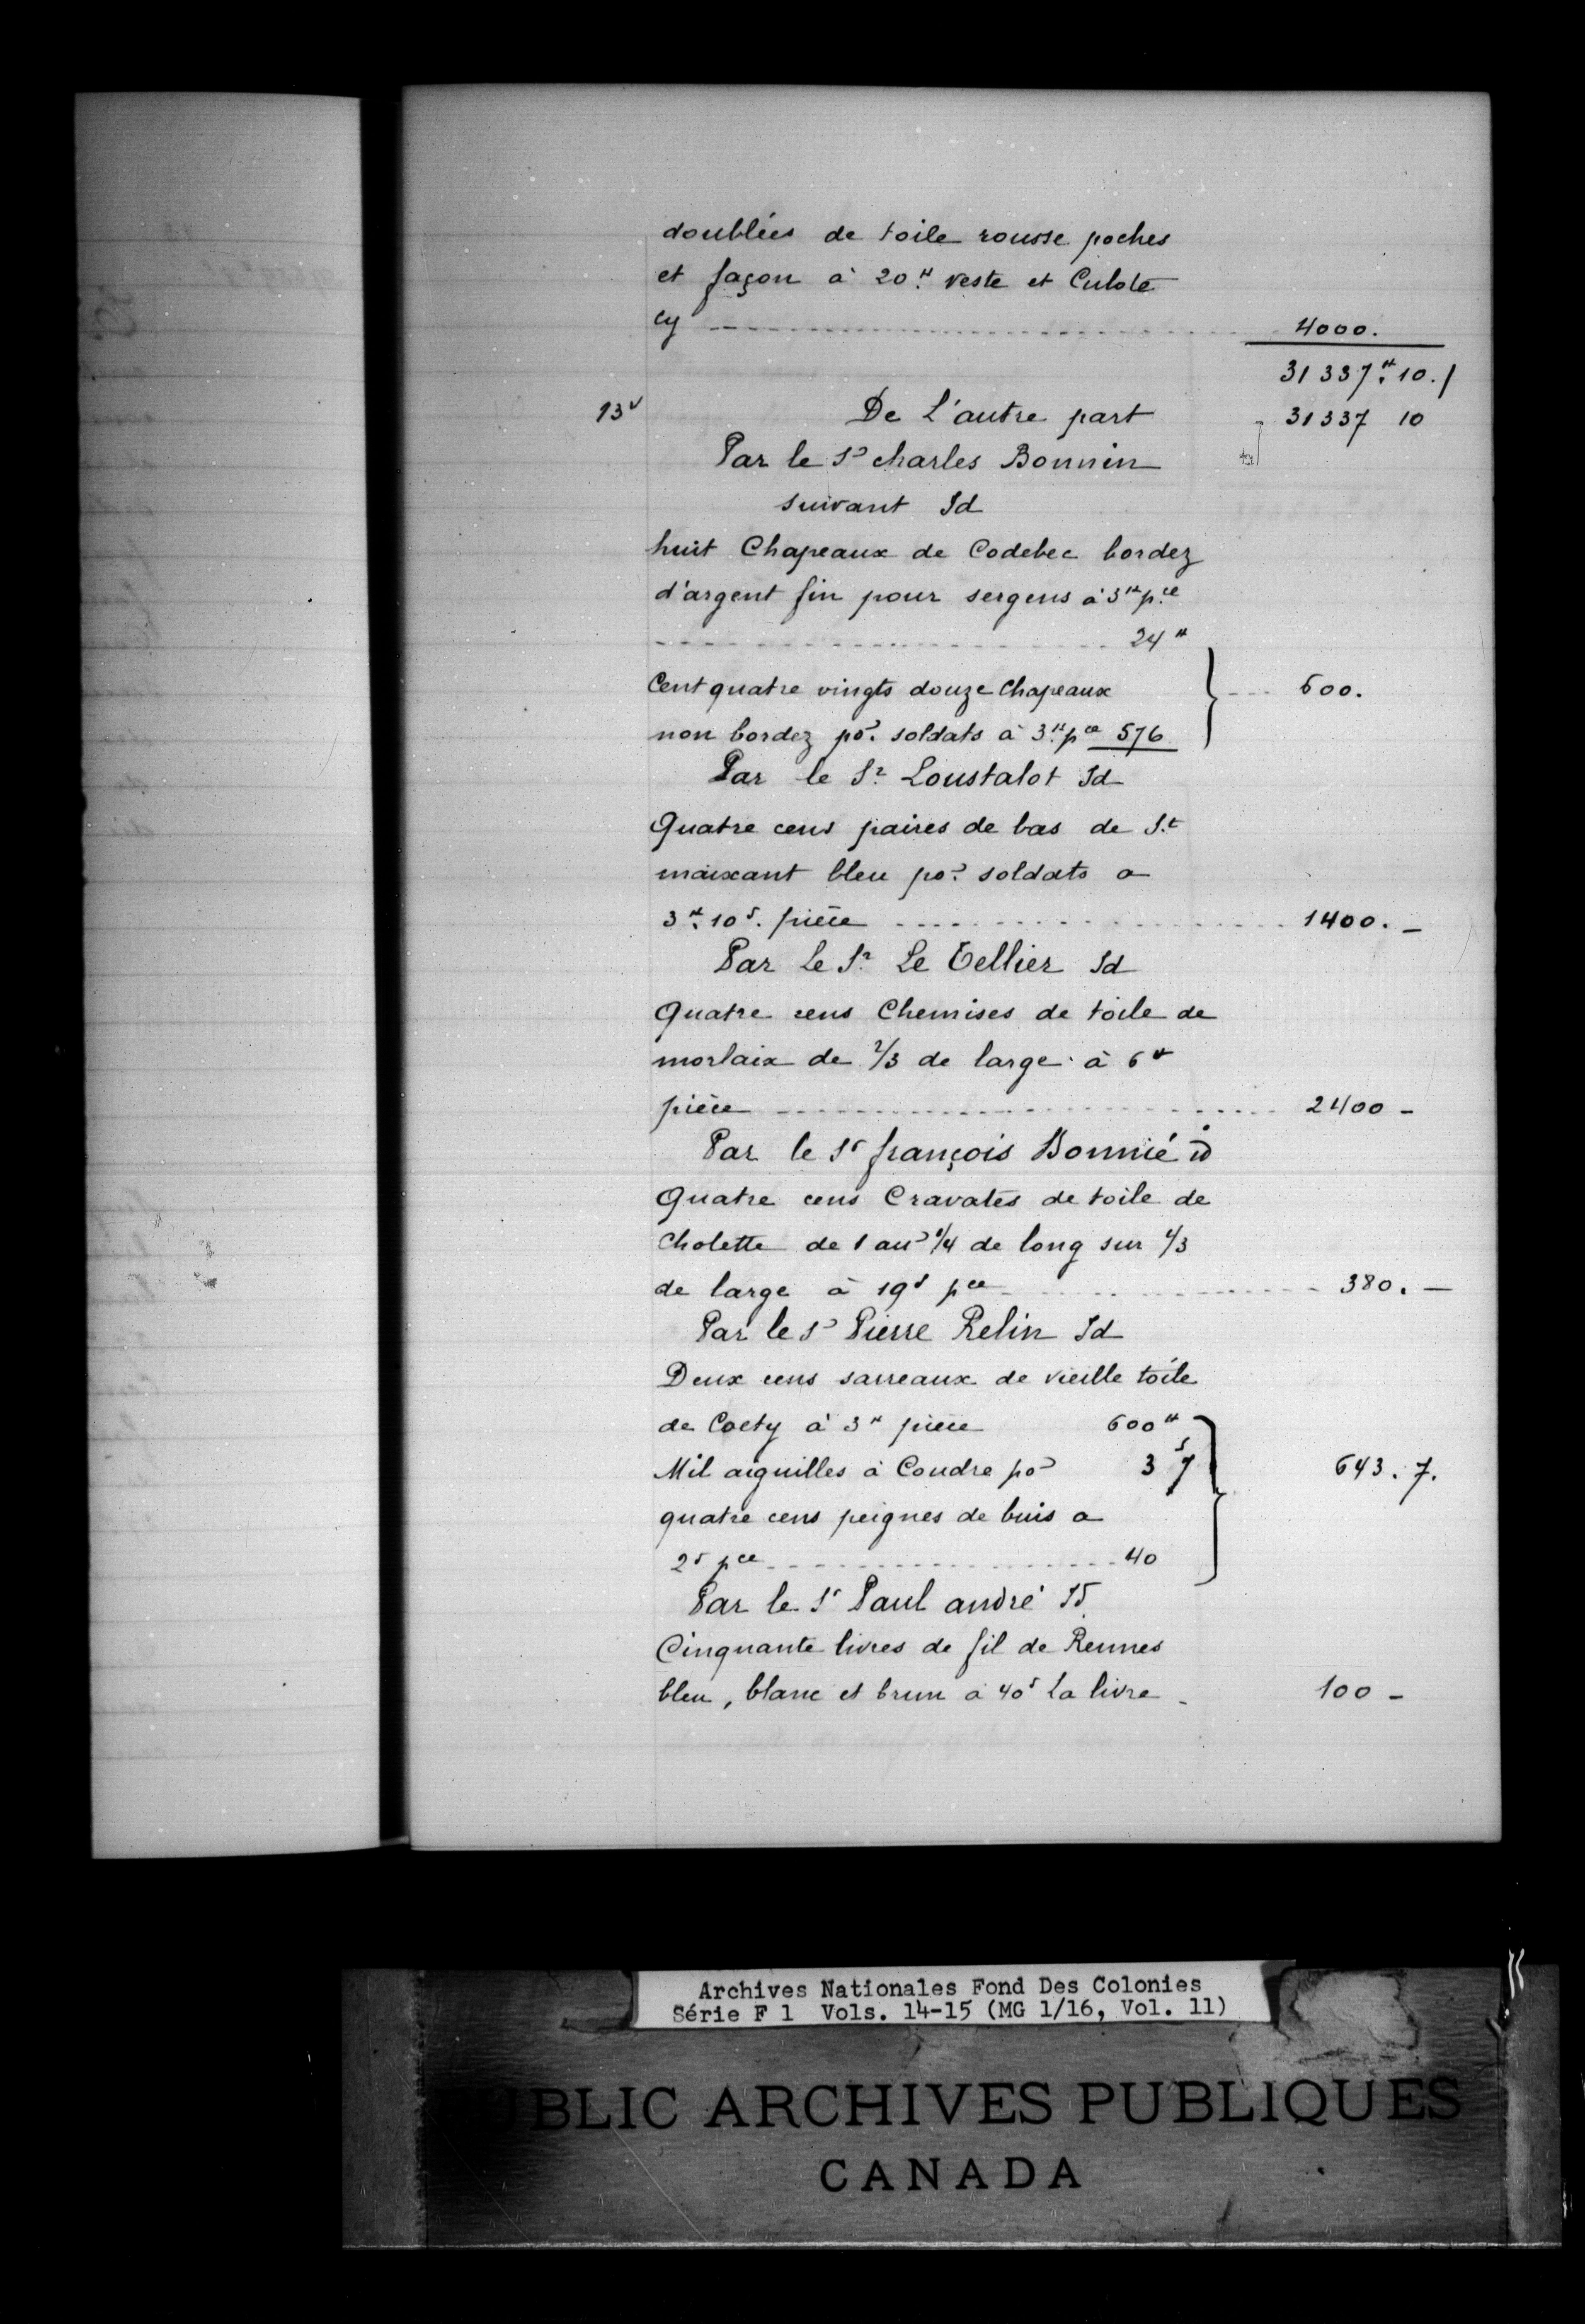 doublées de toile rousse poches
et façon à 20.# veste et Culote
cy ------------------------ 4000.
31 337.# 10./
13v De L'autre part 31337 10
Par le Sr charles Bonnin
suivant Id
huit Chapeaux de Codebec bordez
d'argent fin pour sergens à 3# p.ce
------------------------ 24#
Cent quatre vingts douze Chapeaux --- 600.
non bordez por. soldats à 3.# pce 576
Par le Sr. Loustalot Id
Quatre cens paires de bas de S.t
maixant bleu por. soldats a
3.# 10s. pièce ------------------------ 1400. -
Par Le Sr. Le Tellier Id
Quatre cens Chemises de toile de
morlaix de 2/3 de large à 6#
pièce ------------------------ 2400 -
Par le Sr françois Bonnié id
Quatre cens Cravates de toile de
Cholette de 1 aun 1/4 de long sur 1/3
de large à 19s pce ------------------------ 380. -
Par le Sr Pierre Relin Id
Deux cens sarreaux de vieille toile
de Coety à 3# pièce 600#
Mil aiguilles à Coudre por 3 7s 643. 7.
quatre cens peignes de buis a
2s pce ------------------------ 40
Par le Sr Paul andré Id
Cinquante livres de fil de Rennes
bleu, blanc et brun à 40s La livre - 100 -
Archives Nationales Fond Des Colonies
Série F 1 Vols. 14-15 (MG 1/16, Vol. 11)
PUBLIC ARCHIVES PUBLIQUES
CANADA